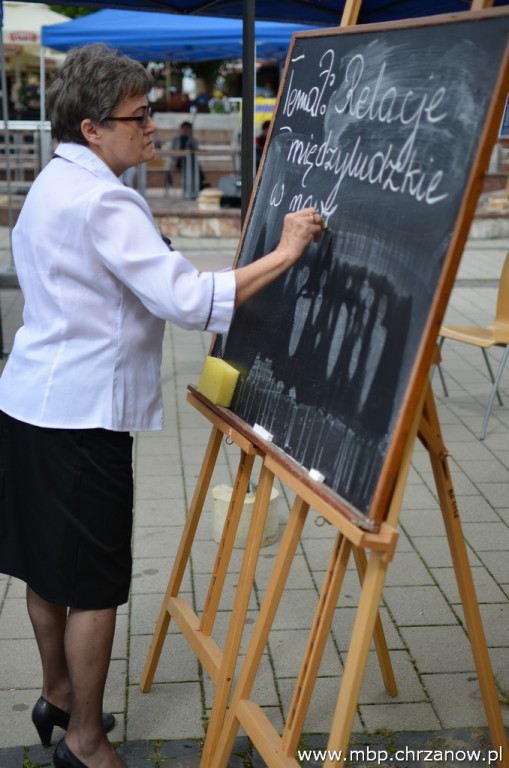 Temat: Relacje
międzyludzkie
w
www.mbp.chrzanow.pl